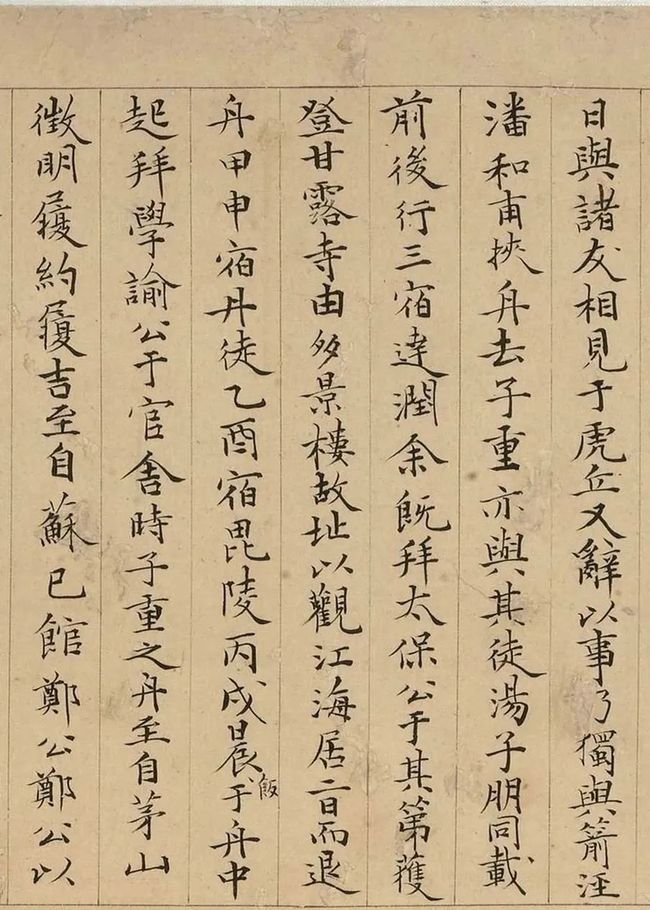 日與諸友相見于虎丘又辭以事乃獨與箭涇
潘和甫挾舟去子重亦與其徒湯子朋同載
前後行三宿達潤余旣拜太保公于其第獲
登甘露寺由多景樓故址以觀江海居二日而退
舟甲申宿丹徒乙酉宿毘陵丙戌晨飯于舟中
起拜學諭公于官舍時子重之舟至自茅山
徵明履約履吉至自蘇已館鄭公鄭公以